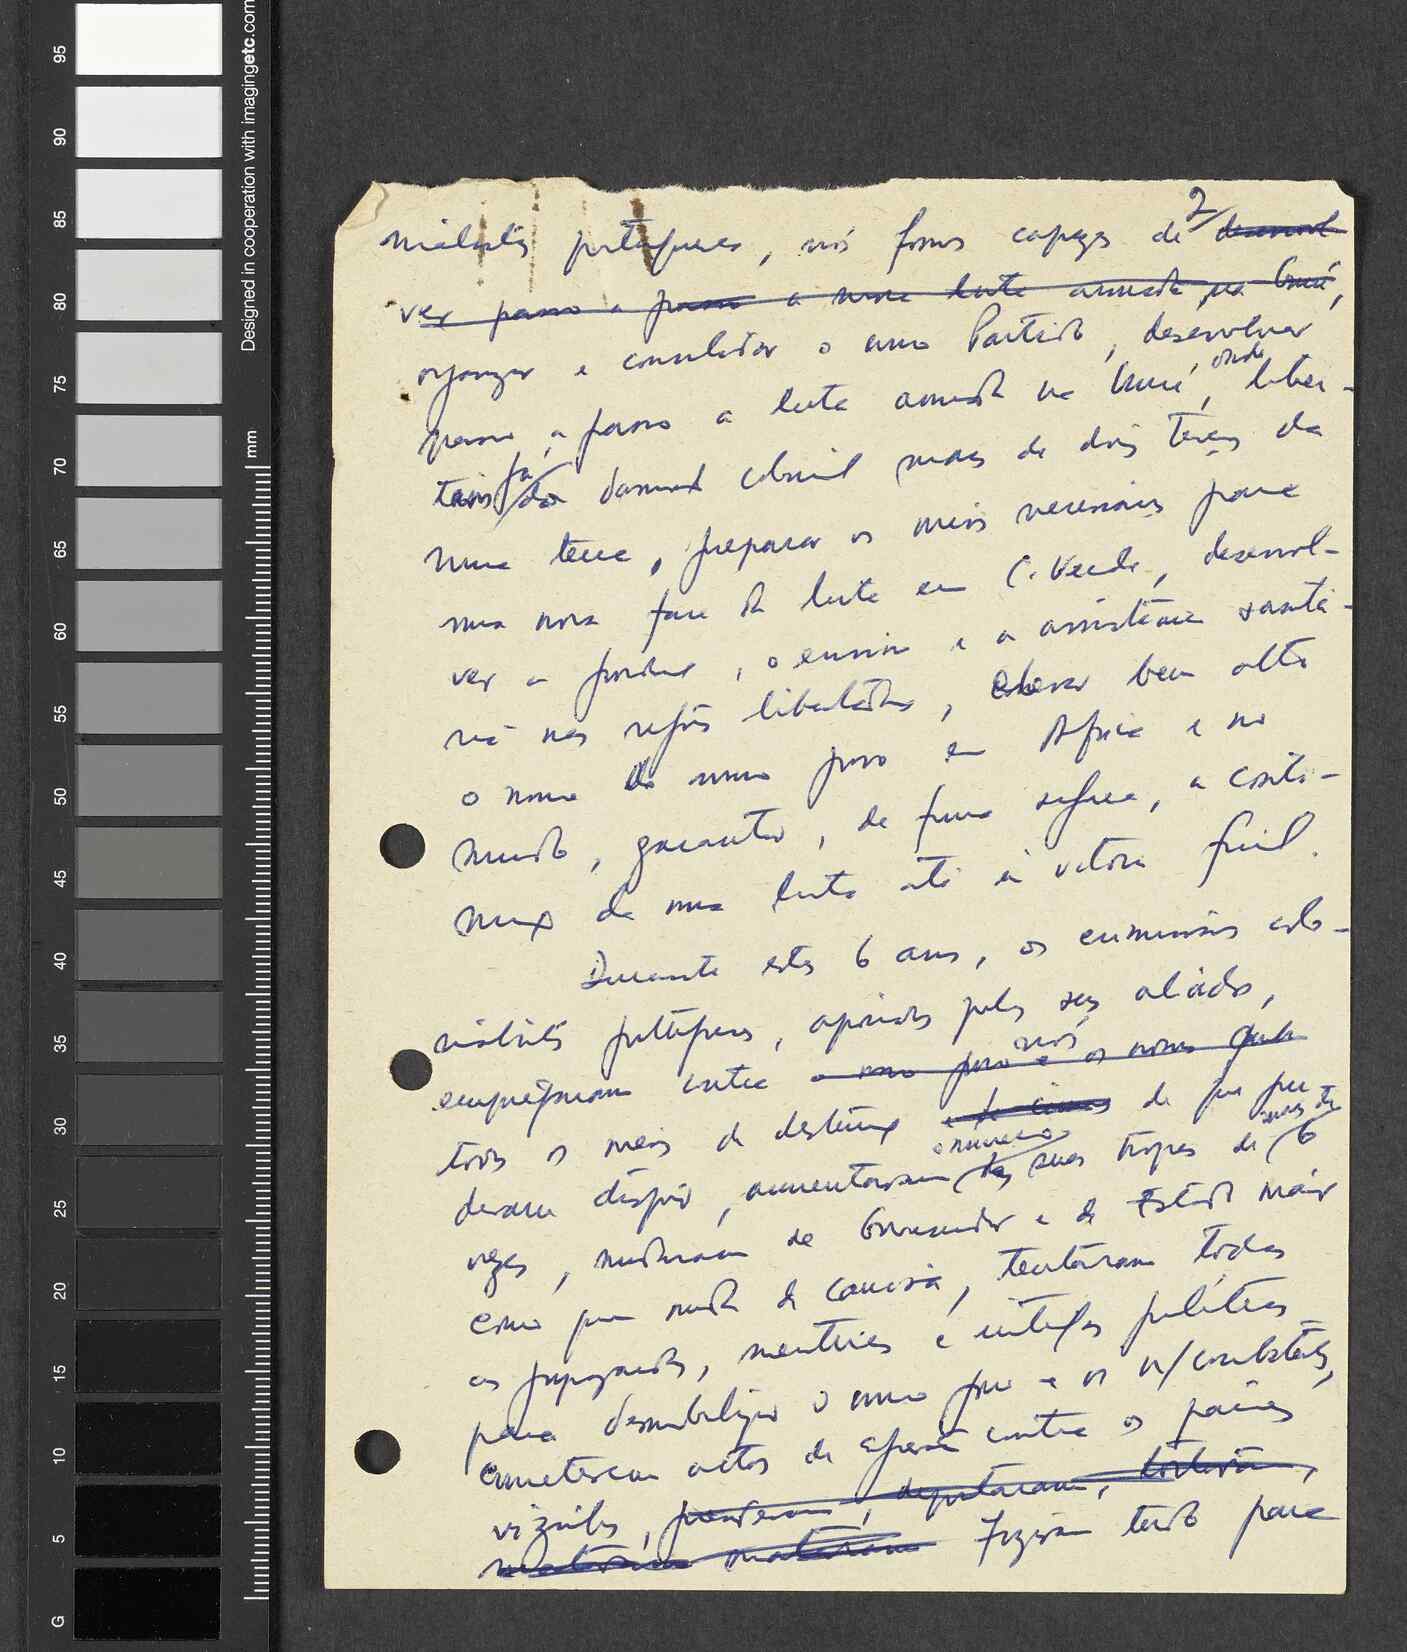 2
nialistas portugueses, nós fomos capazes de desenvol
ver passo a passo a nossa luta armada na Guiné,
organizar e consolidar o nosso Partido, desenvolver
passo a passo a luta armada na Guiné, onde liber-
támos já do domínio colonial mais de dois terços da
nossa terra, preparar os meios necessários para
uma nova fase da luta em C. Verde, desenvol-
ver a produção, o ensino e a assistência sanitá-
ria nas regiões libertadas, elevar bem alto
o nome do nosso povo em África e no
mundo, garantir, de forma segura, a conti-
nuação da nossa luta até à vitória final.
Durante estes 6 anos, os criminosos colo-
nialistas portugueses, apoiados pelos seus aliados,
empregaram contra nós o nosso povo e os nossos
todos os meios de destruição de que pu
deram dispôr, aumentaram o número das suas tropas de mais de 6
vezes, mudaram de Governador e de Estado Maior
como quem muda de camisa, tentaram todas
as propagandas, mentiras e intrigas políticas
para desmobilizar o nosso povo e os n/combatentes,
cometeram actos de agressão contra os países
vizinhos, prenderam, deportaram, torturaram,
mataram Fizeram tudo para
Designed in cooperation with imagingetc.com
mm
95
90
85
80
75
70
65
60
55
50
45
40
35
30
25
20
15
10
5
G